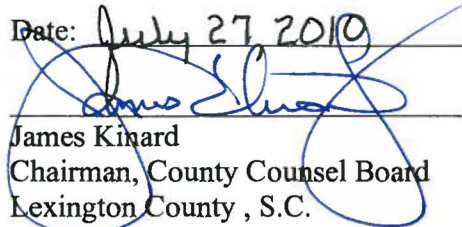 Date: July 27 2010
James Kinard
Chairman, County Counsel Board
Lexington County , S.C.